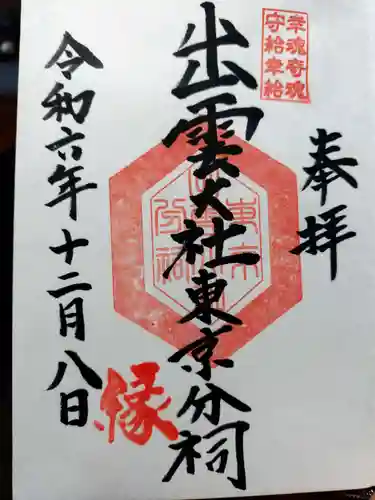 幸魂奇魂
守給幸給
奉拝
出雲大社東京分祠
縁
令和六年十二月八日